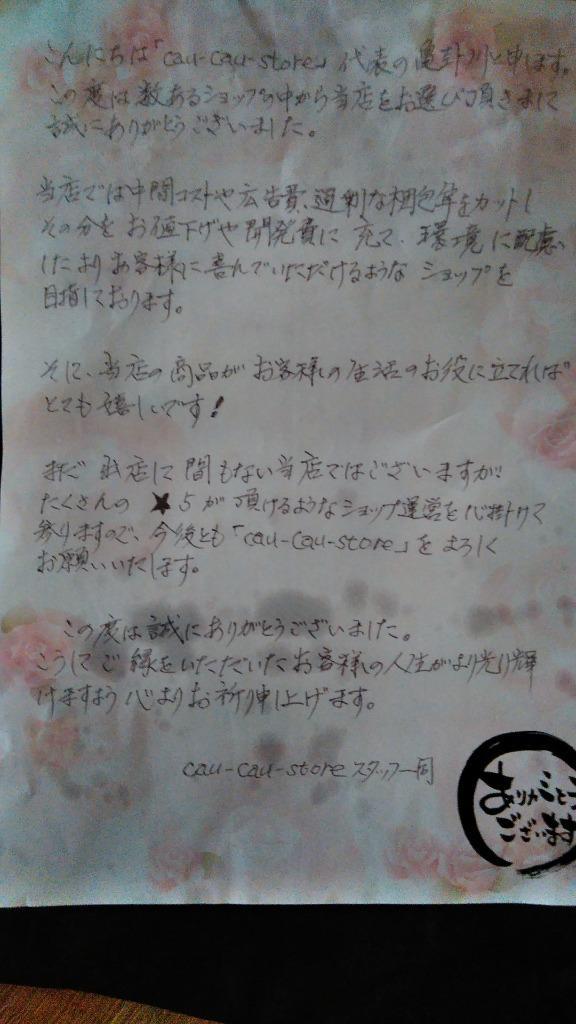 こんにちは「cau-cau-store」代表の亀卦川と申します。
この度は数あるショップの中から当店をお選び頂きまして
誠にありがとうございました。
当店では中間コストや広告費、過剰な梱包等をカットし
その分をお値下げや開発費に充て、環境に配慮
したよりお客様に喜んでいただけるようなショップを
目指しております。
そして、当店の商品がお客様の生活のお役に立てれば
とても嬉しいです!
まだ 出店して間もない当店ではございますが
たくさんの ★5が頂けるようなショップ運営を心掛けて
参りますので、今後とも「cau-cau-store」をよろしく
お願いいたします。
この度は誠にありがとうございました。
こうしてご縁をいただいたお客様の人生がより光り輝
けますよう心よりお祈り申し上げます。
cau-cau-store スタッフ一同
ありがとう
ございます